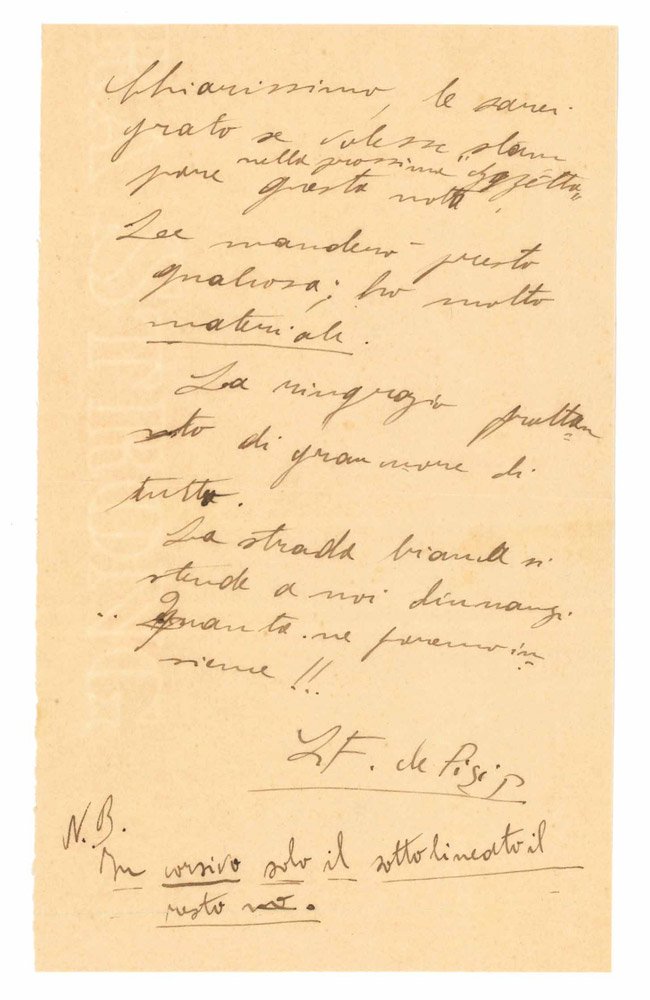 Chiarissimo, le sarei
grato se volesse stam
pare nella prossima "Gazzetta"
questa nota,
Lee manderò presto
qualcosa; ho molto
materiale.
La ringrazio frattan
to di gran cuore di
tutto.
La strada bianca si
stende a noi dinnanzi.
.. Quanta ne faremo in
sieme!!.
F. de Pisis
N.B.
In corsivo solo il sottolineato il
resto no.